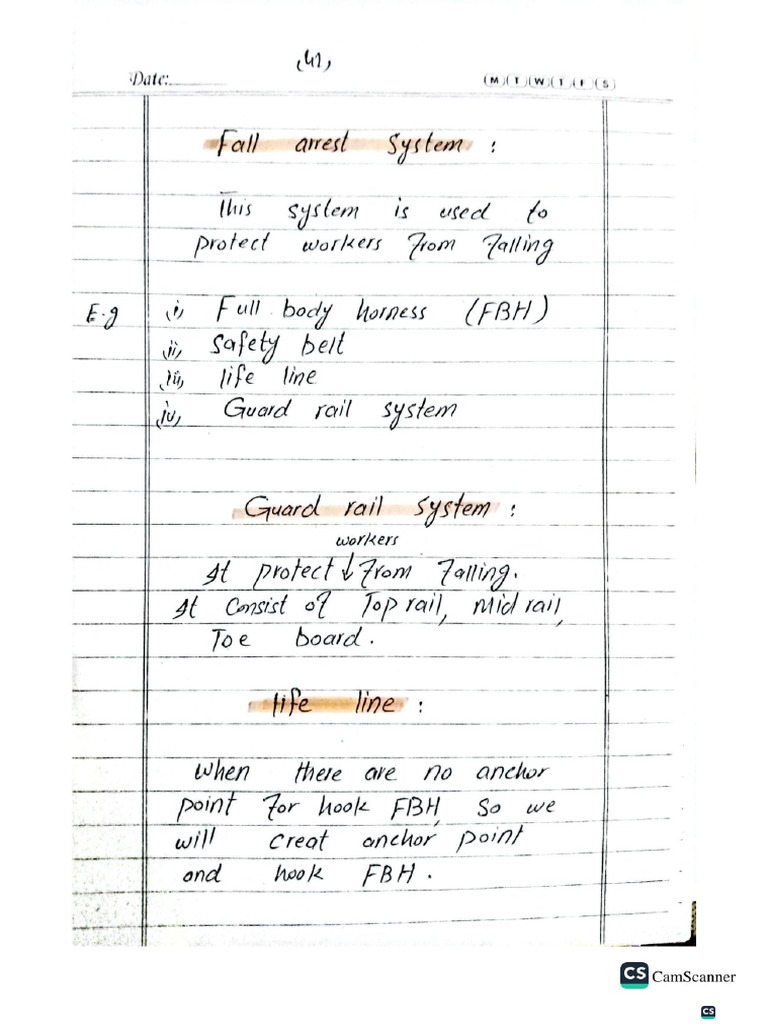 (41)
Date:
M T W T F S
Fall arrest System :
This system is used to
protect workers From Falling
E.g (i) Full body harness (FBH)
(ii) Safety belt
(iii) life line
(iv) Guard rail system
Guard rail system :
workers
It protect ↓ From Falling.
It Consist of Top rail, Mid rail,
Toe board.
life line :
When there are no anchor
point For hook FBH, So we
will creat anchor point
and hook FBH.
CS CamScanner
CS